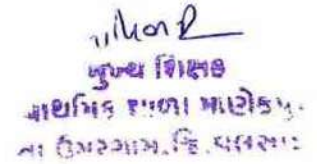 મુખ્ય શિક્ષક
પ્રાથમિક શાળા માણેકપુર
તા. ઉમરગામ. જિ. વલસાડ